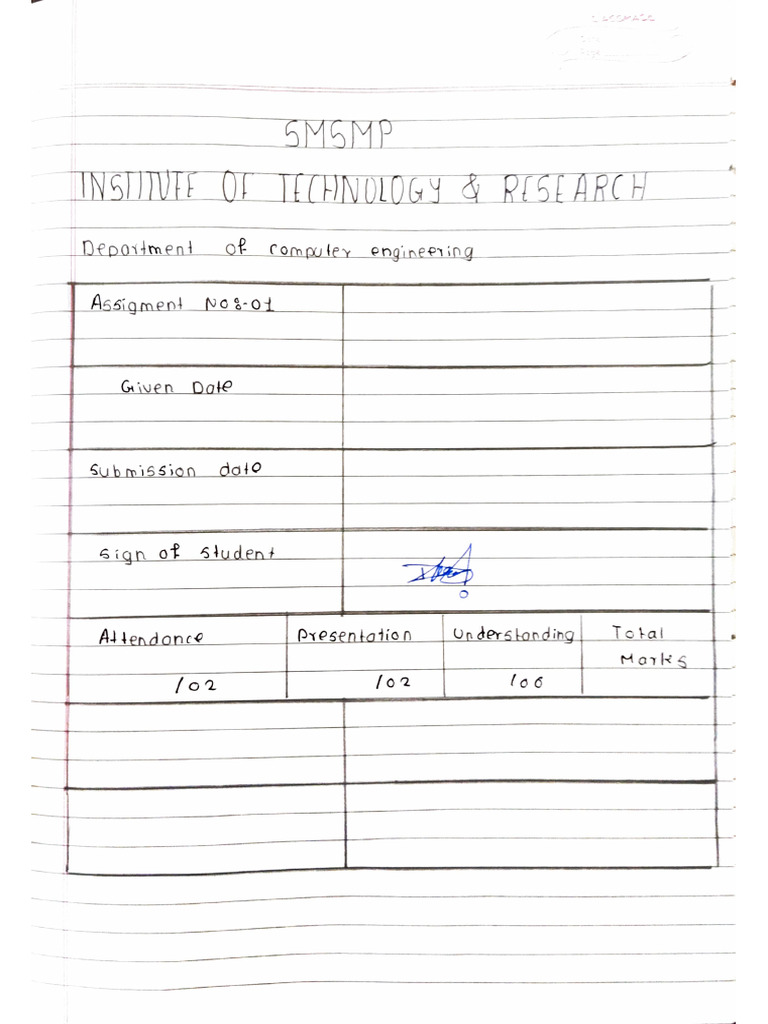 classmate
Date
Page
SMSMP
INSTITUTE OF TECHNOLOGY & RESEARCH
Department of computer engineering
Assigment No:-01
Given Date
Submission date
Sign of Student
Attendance Presentation Understanding Total
Marks
/02 /02 /06